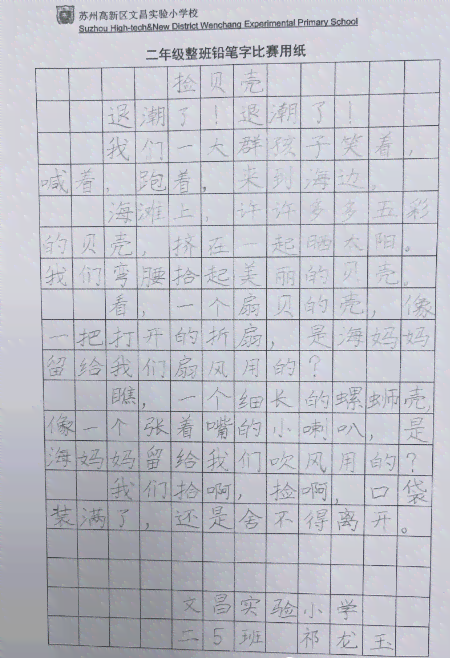 苏州高新区文昌实验小学校
Suzhou High-tech&New District Wenchang Experimental Primary School
二年级整班铅笔字比赛用纸
捡贝壳
退潮了！退潮了！
我们一大群孩子笑着，
喊着，跑着，来到海边，
海滩上，许许多多五彩
的贝壳，挤在一起晒太阳。
我们弯腰拾起美丽的贝壳。
看，一个扇贝的壳，像
一把打开的折扇，是海妈妈
留给我们扇风用的？
瞧，一个细长的螺蛳壳，
像一个张着嘴的小喇叭，是
海妈妈留给我们吹风用的？
我们拾啊，捡啊，口袋
装满了，还是舍不得离开。
文昌实验小学
二5班 祁龙玉